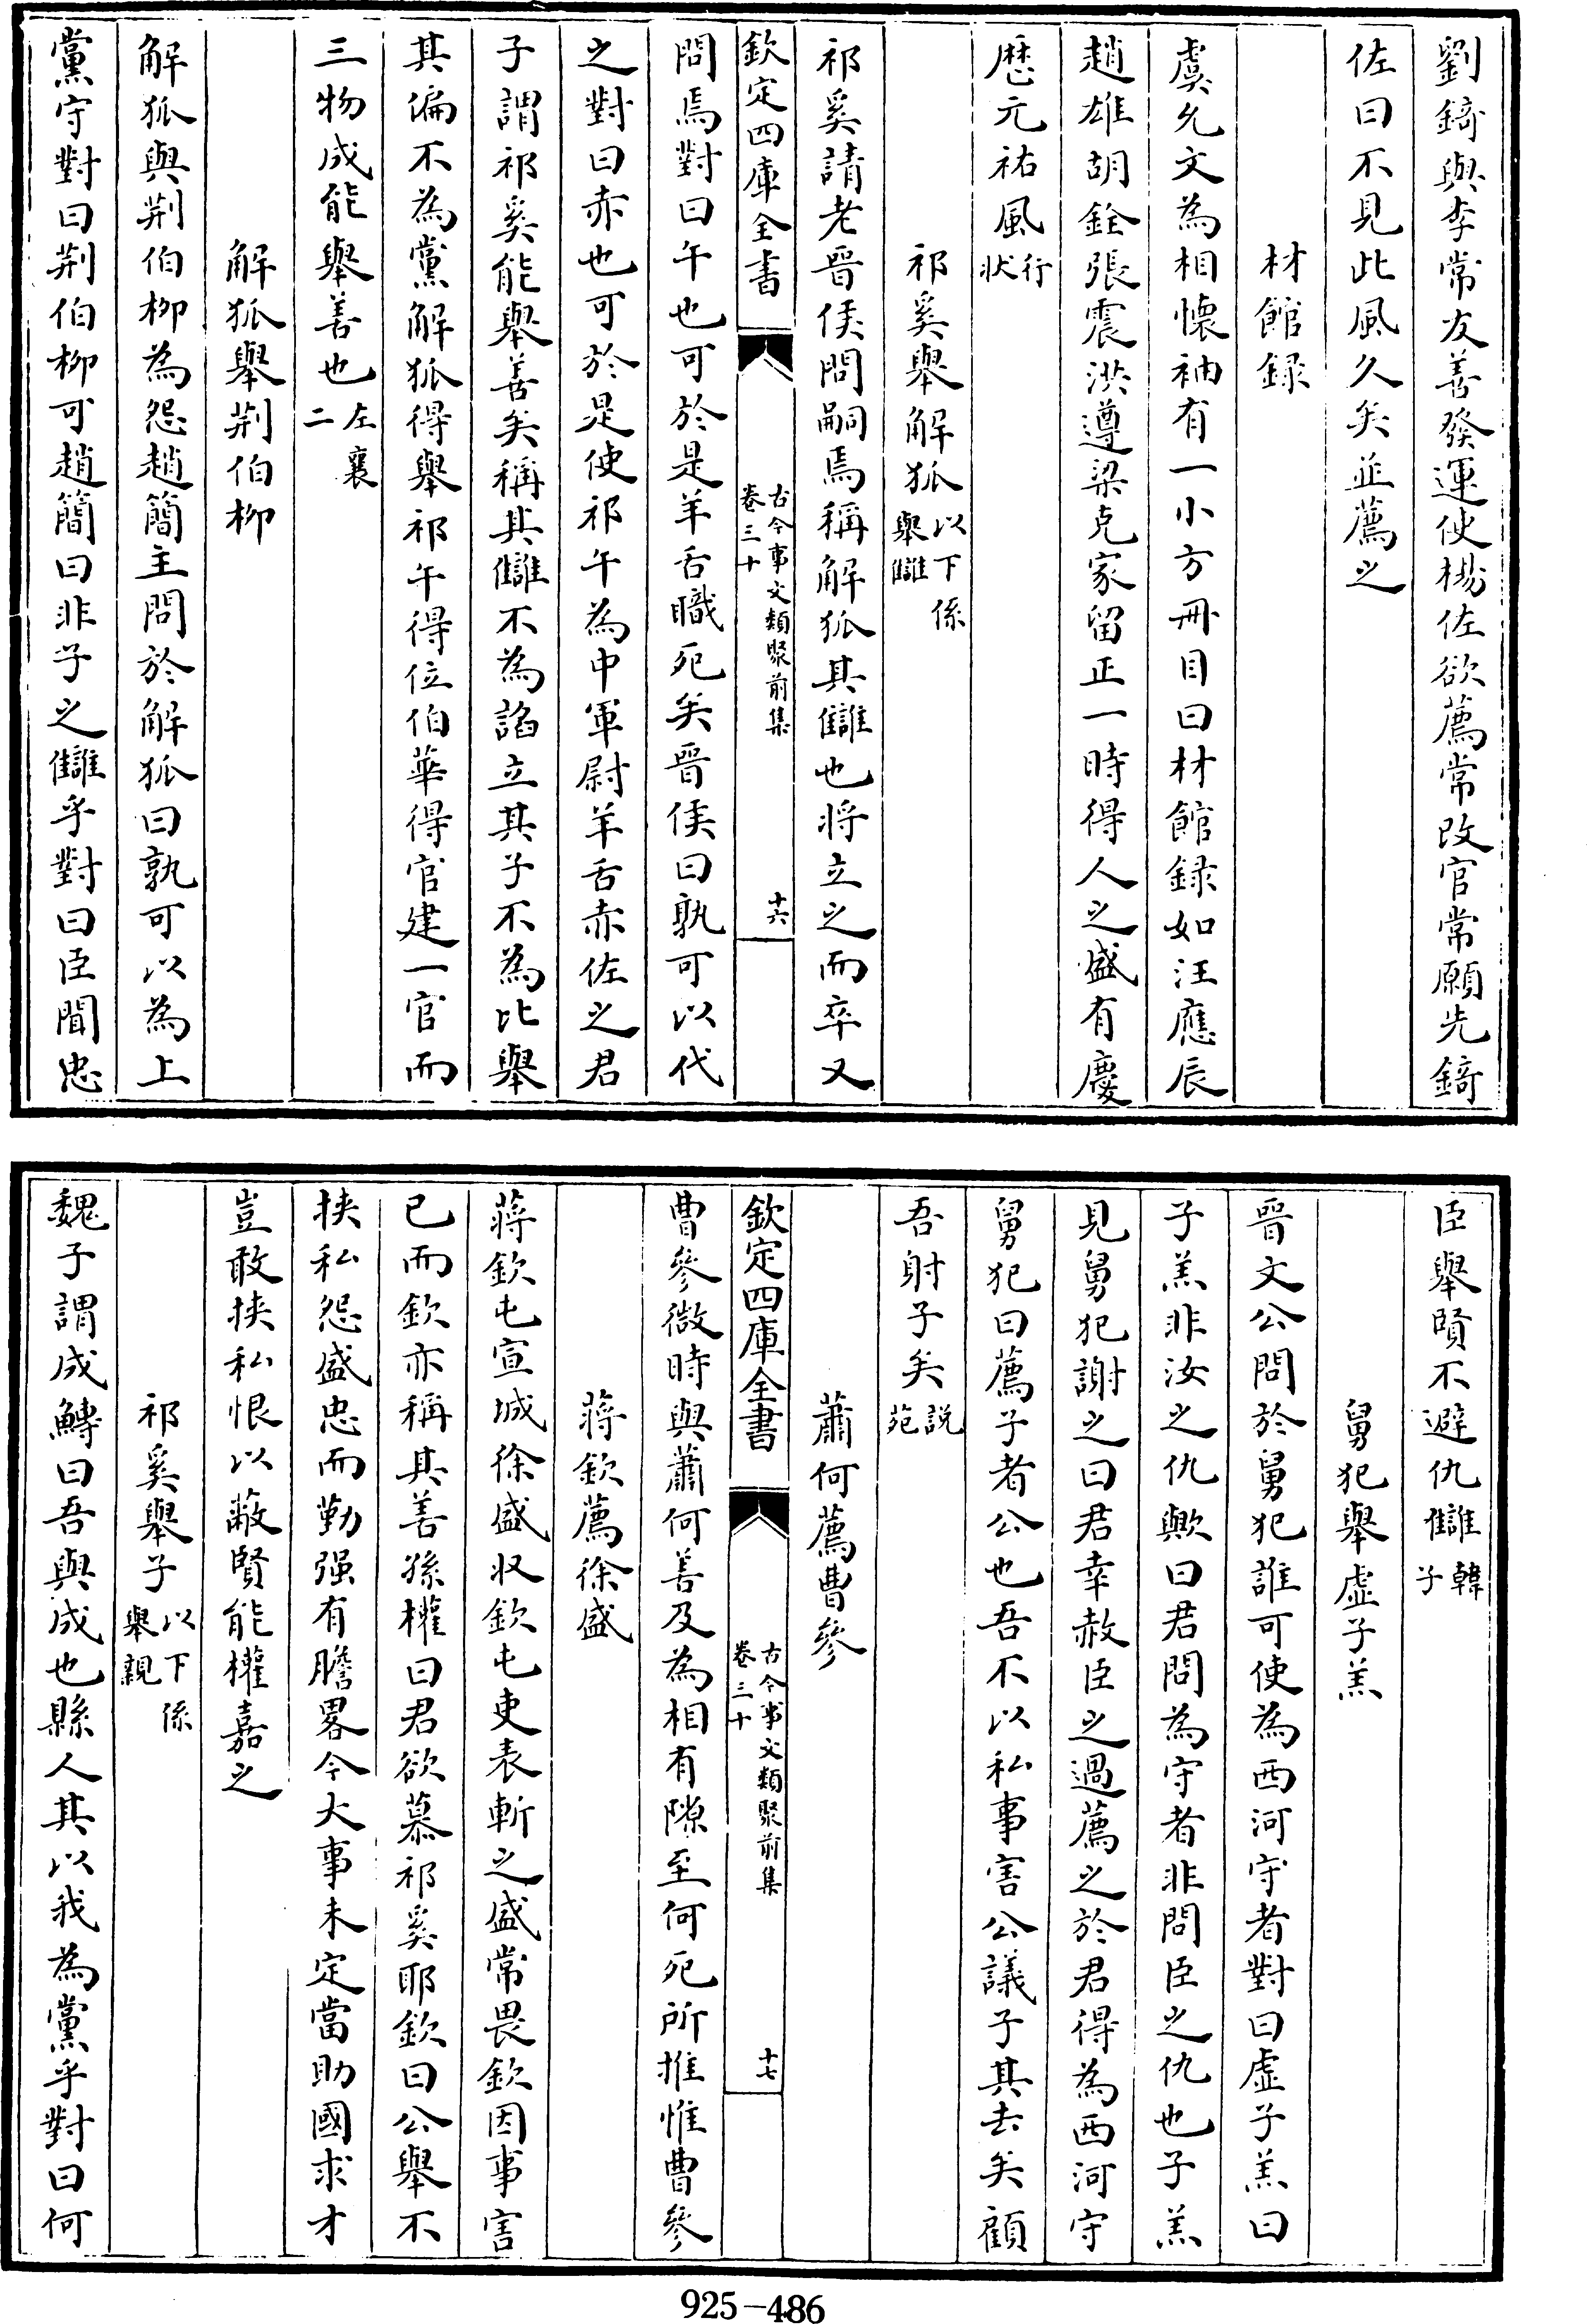 劉錡與李常友善發運使楊佐欲薦常改官常願先錡
佐曰不見此風久矣並薦之
材館録
虞允文為相懷袖有一小方冊目曰材館録如汪應辰
趙雄胡銓張震洪遵梁克家留正一時得人之盛有慶
歷元祐風行狀
祁奚舉解狐以下係舉讎
祁奚請老晉侯問嗣焉稱解狐其讎也將立之而卒又
欽定四庫全書
古今事文類聚前集
卷三十
十六
問焉對曰午也可於是羊舌職死矣晉侯曰孰可以代
之對曰赤也可於是使祁午為中軍尉羊舌赤佐之君
子謂祁奚能舉善矣稱其讎不為諂立其子不為比舉
其偏不為黨解狐得舉祁午得位伯華得官建一官而
三物成能舉善也左襄二
解狐舉荆伯柳
解狐與荆伯柳為怨趙簡主問於解狐曰孰可以為上
黨守對曰荆伯柳可趙簡曰非子之讎乎對曰臣聞忠
臣舉賢不避仇讎韓子
舅犯舉虛子羔
晉文公問於舅犯誰可使為西河守者對曰虛子羔曰
子羔非汝之仇歟曰君問為守者非問臣之仇也子羔
見舅犯謝之曰君幸赦臣之過薦之於君得為西河守
舅犯曰薦子者公也吾不以私事害公議子其去矣顧
吾射子矣說苑
蕭何薦曹參
欽定四庫全書
古今事文類聚前集
卷三十
十七
曹參微時與蕭何善及為相有隙至何死所推惟曹參
蔣欽薦徐盛
蔣欽屯宣城徐盛收欽屯吏表斬之盛常畏欽因事害
已而欽亦稱其善孫權曰君欲慕祁奚耶欽曰公舉不
挾私怨盛忠而勤强有膽畧今大事未定當助國求才
豈敢挾私恨以蔽賢能權嘉之
祁奚舉子以下係舉親
魏子謂成鱄曰吾與成也縣人其以我為黨乎對曰何
925-486